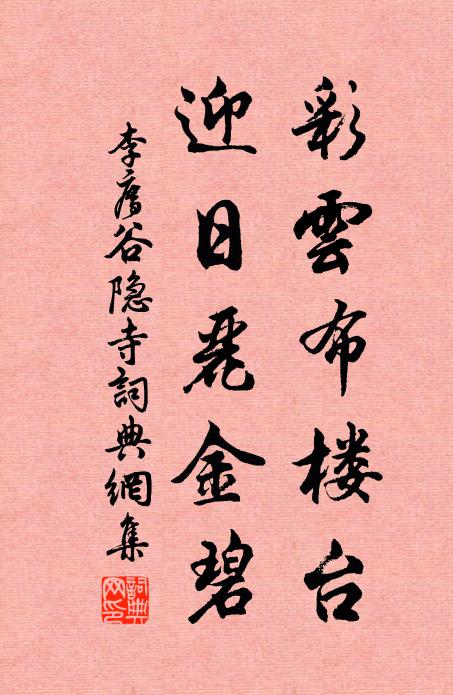 彩雲布楼台
迎日麗金碧
李廌谷隐寺詞典網集
詞典
网印